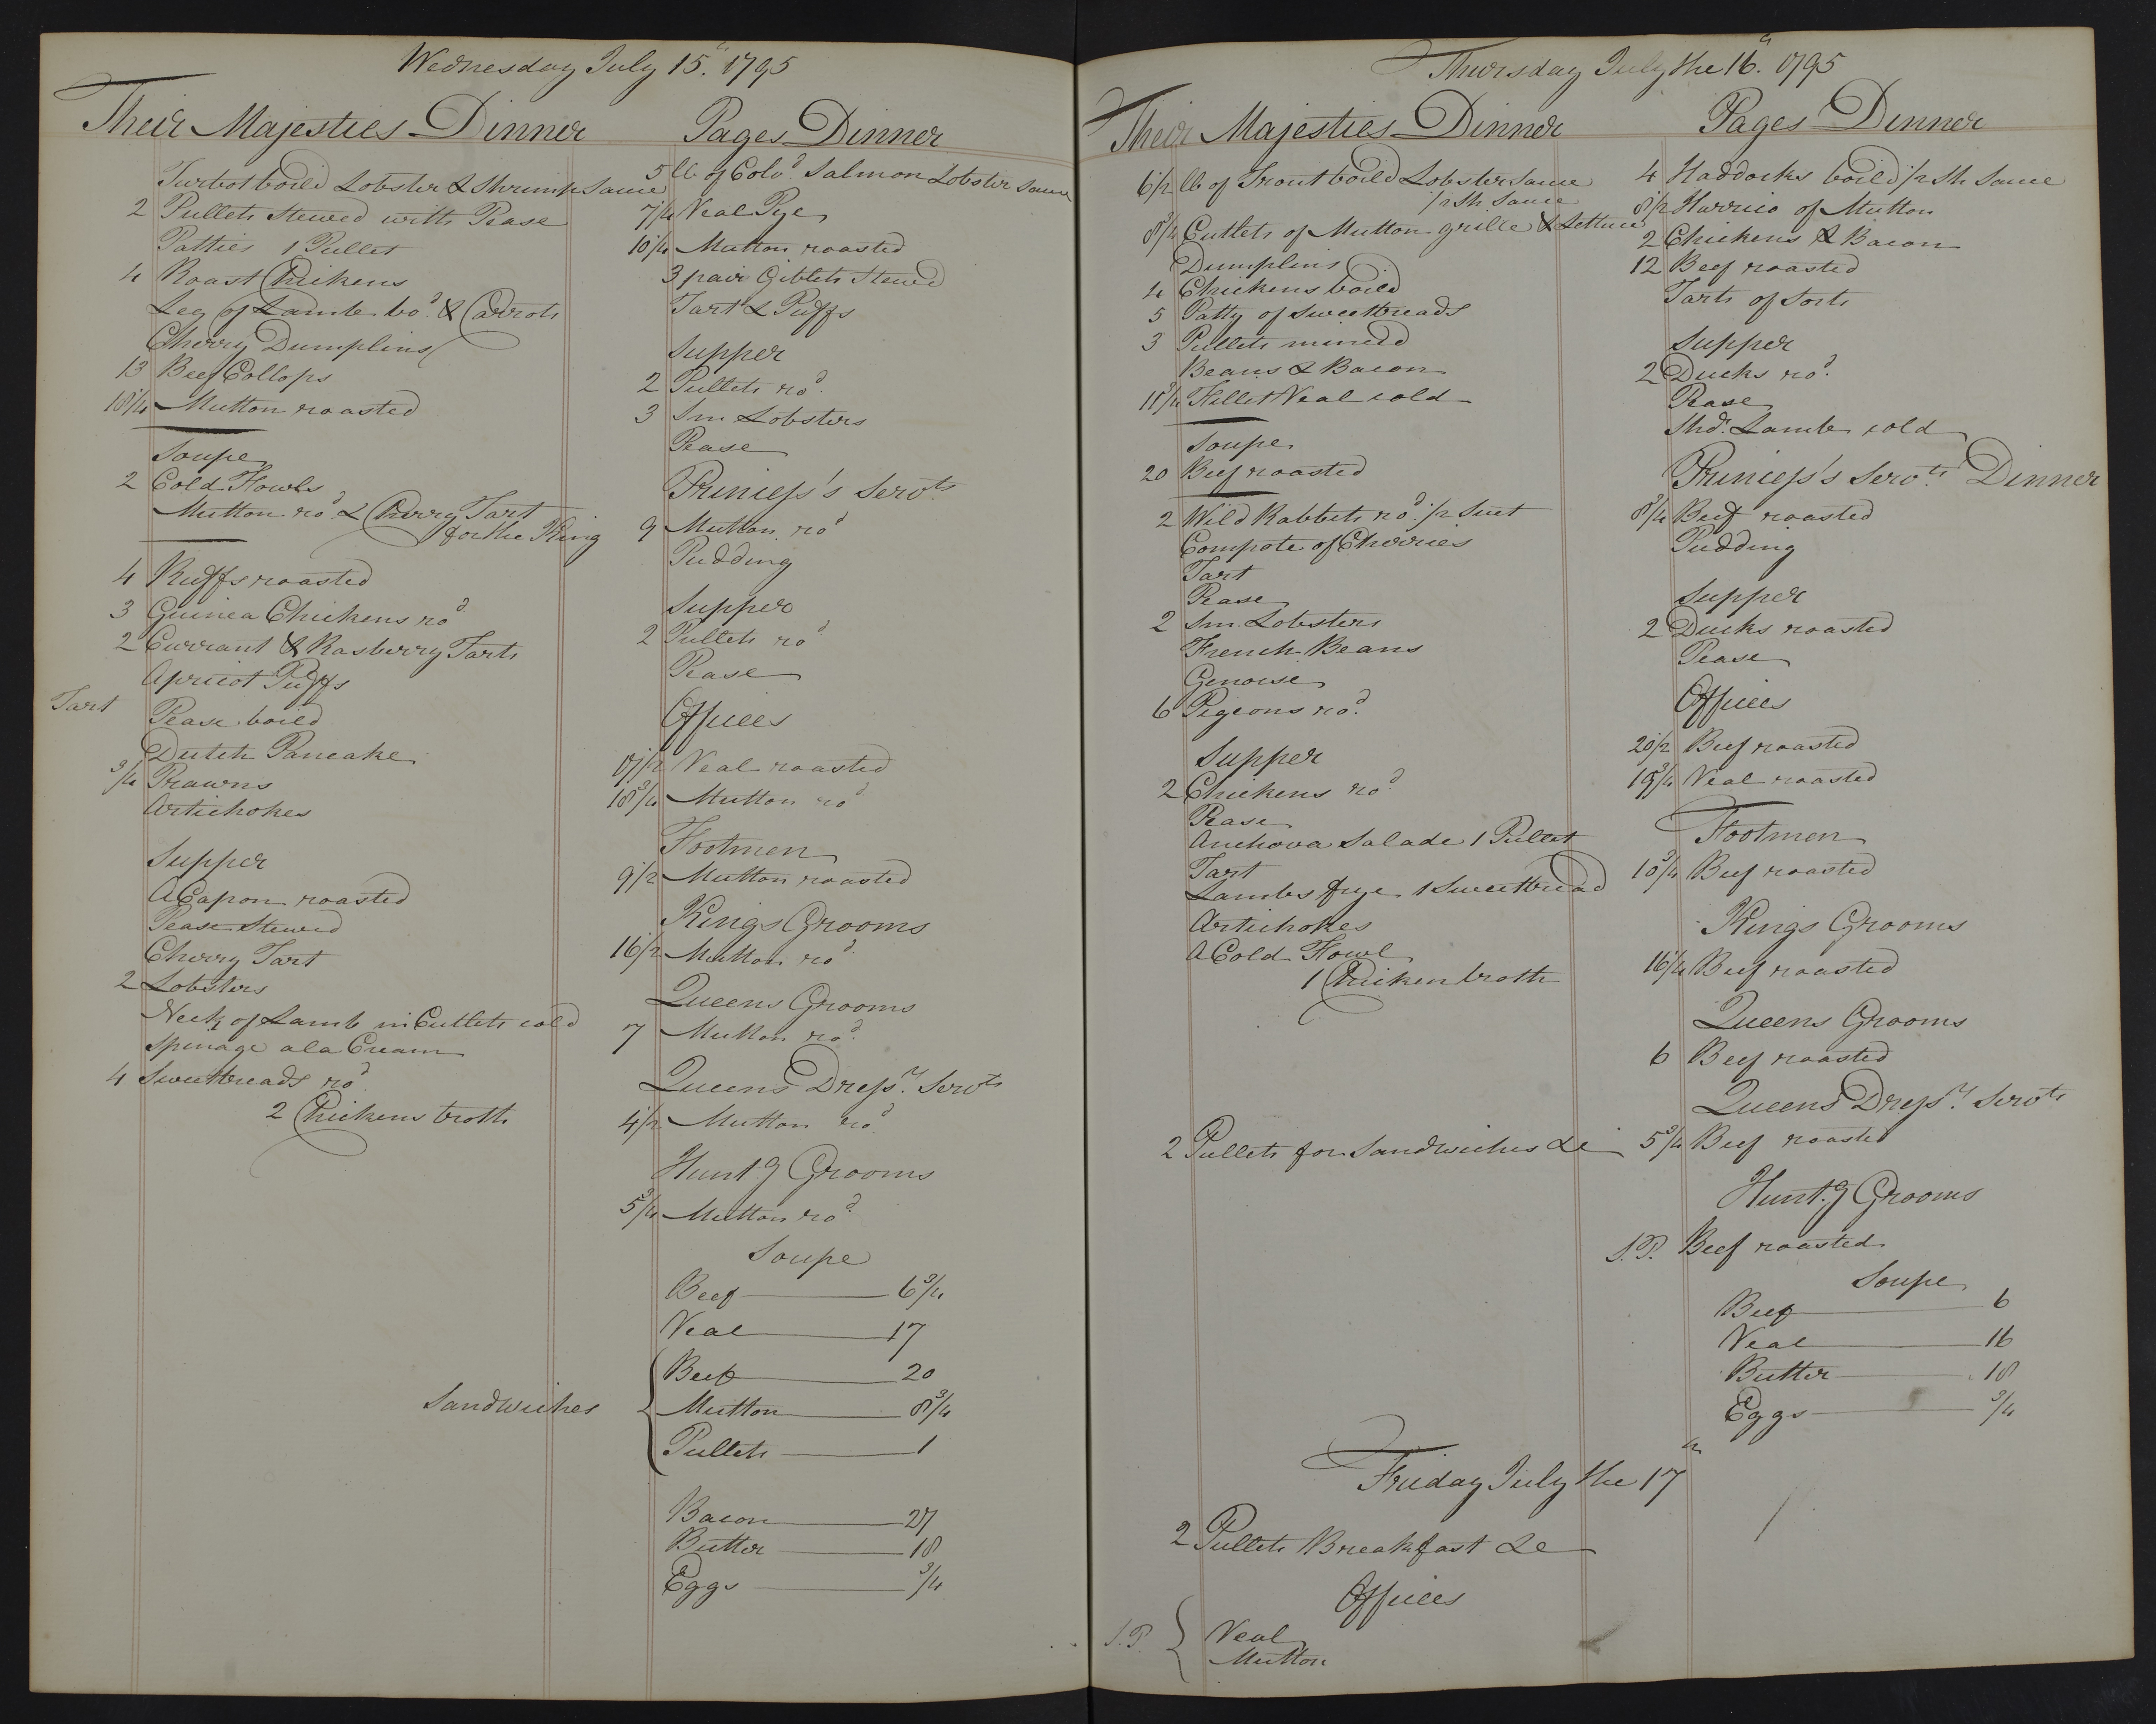 Wednesday July 15.th 1795
Their Majesties Dinner
Turbot boild Lobster & Shrimp Sauce
2 Pullets Stewed with Pease
Patties 1 Pullet
4 Roast Chickens
Leg of Lamb bo.d & Carrots
Cherry Dumplins
13 Beef Collops
Mutton roasted
Soupe
2 Cold Fowls
Mutton ro.d & Cherry Tart
for the King
4 Ruffs roasted
3 Guinea Chickens ro.d
2 Currant & Rasberry Tarts
Apricot Puffs
Tart Pease boild
Dutch Pancake
3/4 Prawns
Artichokes
Supper
A Capon roasted
Pease Stewed
Cherry Tart
2 Lobsters
Neck of Lamb in Cutlets cold
Spinage a la Cream
4 Sweetbreads ro.d
2 Chickens broth
Pages Dinner
5 lb of Salmon Lobster Sauce
7 1/4 Veal Pye
10 1/4 Mutton roasted
3 pair Giblets Stewd
Tart & Puffs
Supper
2 Pullets ro.d
3 Sm Lobsters
Pease
Princess's Serv.ts
9 Mutton ro.d
Pudding
Supper
2 Pullets ro.d
Pease
Offices
17 1/2 Veal roasted
18 3/4 Mutton ro.d
Footmen
9 1/2 Mutton roasted
Kings Grooms
16 1/2 Mutton ro.d
Queens Grooms
7 Mutton ro.d
Queens Dress.rs Serv.ts
4 1/2 Mutton ro.d
Hunt.g Grooms
5 3/4 Mutton ro.d
Soupe
Beef 6 3/4
Veal 17
Sandwiches
Beef 20
Mutton 8 3/4
Pullets 1
Bacon 27
Butter 18
Eggs 3/4
Thursday July the 16.th 1795
Their Majesties Dinner
6 1/2 lb of Trout boild Lobster Sauce
1/2 Sh Sauce
8 3/4 Cutlets of Mutton grille & Lettuce
Dumplins
4 Chickens boild
5 Patty of Sweetbreads
3 Pullets mincd
Beans & Bacon
11 3/4 Fillet Veal cold
Soupe
20 Beef roasted
2 Wild Rabbets ro.d 1/2 Suet
Compote of Cherries
Tart
Pease
2 Sm. Lobsters
French Beans
Genoise
6 Pigeons ro.d
Supper
2 Chickens ro.d
Pease
Anchova Salade 1 Pullet
Tart
Lambs frye 1 Sweetbread
Artichokes
A Cold Fowl
1 Chicken broth
2 Pullets for Sandwiches &c
Pages Dinner
4 Haddocks boild 1/2 Sh Sauce
8 1/2 Harrico of Mutton
2 Chickens & Bacon
12 Beef roasted
Tarts of Sorts
Supper
2 Ducks ro.d
Pease
Sho.dr Lamb cold
Princess's Serv.ts Dinner
8 3/4 Beef roasted
Pudding
Supper
2 Ducks roasted
Pease
Offices
20 1/2 Beef roasted
19 3/4 Veal roasted
Footmen
10 3/4 Beef roasted
Kings Grooms
16 1/4 Beef roasted
Queens Grooms
6 Beef roasted
Queens Dress.rs Serv.ts
5 3/4 Beef roasted
Hunt.g Grooms
S.P. Beef roasted
Soupe
Beef 6
Veal 16
Butter 18
Eggs 3/4
Friday July the 17th
2 Pullets Breakfast &c
Offices
S.P. Veal
Mutton